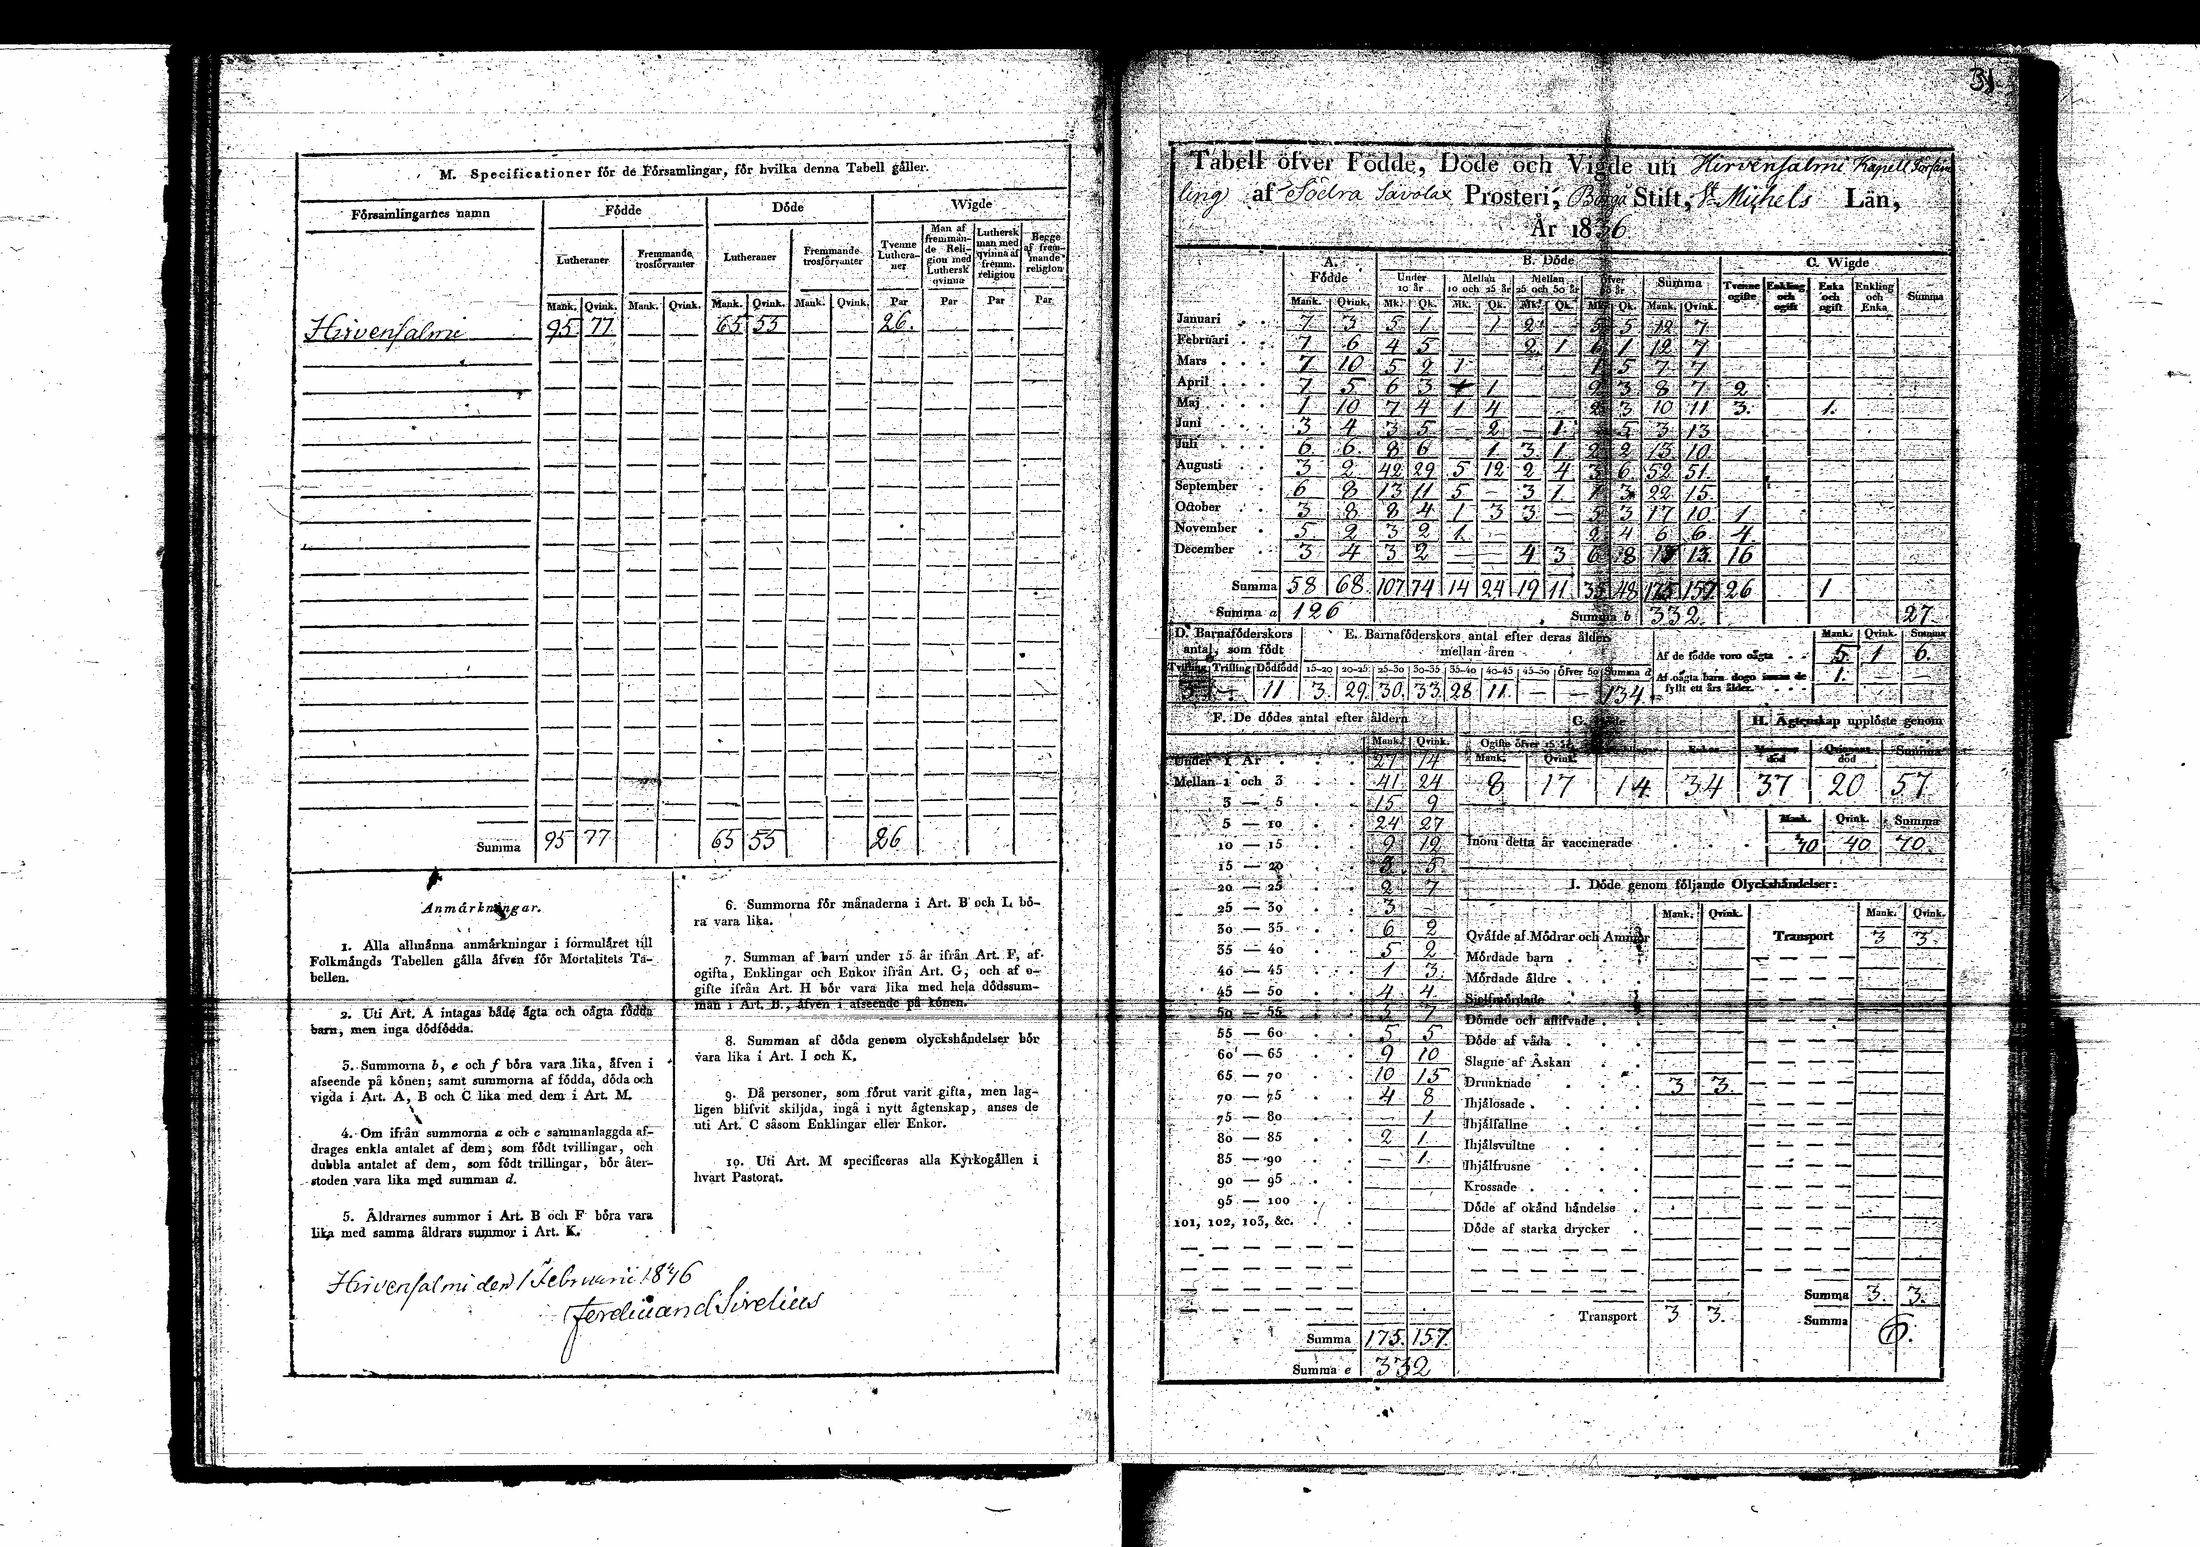 M. Specificationer för de Församlingar, för hvilka denna Tabell gäller.
Församlingarnes namn Födde Döde Wigde
Lutheraner Fremmande trosförvanter Lutheraner Fremmande trosförvanter Tvenne Lutheraner Man af fremmande Religion med Luthersk qvinna Luthersk man med qvinna af fremm. religion Begge af fremmande religion
Mank. Qvink. Mank. Qvink. Mank. Qvink. Mank. Qvink. Par Par Par Par
Hirvensalmi 95 77 — — 65 55 26.
Summa 95 77 65 55 26
Anmärkningar.
1. Alla allmänna anmärkningar i formuläret till
Folkmängds Tabellen gälla äfven för Mortalitets Ta-
bellen.
2. Uti Art. A intagas både ägta och oägta födda
barn, men inga dödfödda.
3. Summorna b, e och f böra vara lika, äfven i
afseende på könen; samt summorna af födda, döda och
vigda i Art. A, B och C lika med dem i Art. M.
4. Om ifrån summorna a och c sammanlaggda af-
drages enkla antalet af dem, som födt tvillingar, och
dubbla antalet af dem, som födt trillingar, bör åter-
stoden vara lika med summan d.
5. Åldrarnes summor i Art. B och F böra vara
lika med samma åldrars summor i Art. K.
6. Summorna för månaderna i Art. B och L bö-
ra vara lika.
7. Summan af barn under 15 år ifrån Art. F, af
ogifta, Enklingar och Enkor ifrån Art. G, och af o-
gifte ifrån Art. H bör vara lika med hela dödssum-
man i Art. B., äfven i afseende på könen.
8. Summan af döda genom olyckshändelser bör
vara lika i Art. I och K.
9. Då personer, som förut varit gifta, men lag-
ligen blifvit skiljda, ingå i nytt ägtenskap, anses de
uti Art. C såsom Enklingar eller Enkor.
10. Uti Art. M specificeras alla Kyrkogällen i
hvart Pastorat.
Hirvensalmi den 1 Februarii
Ferdinand Sirelius
31.
Tabell öfver Födde, Döde och Vigde uti Hirvensalmi Kapell Församling
af Södra Savolax Prosteri, Borgå Stift, St Michels Län,
År 1836
A. Födde B. Döde C. Wigde
Under 10 år Mellan 10 och 25 år Mellan 25 och 50 år öfver 50 år Summa Tvenne ogifte Enkling och ogift Enka och ogift Enkling och Enka Summa
Mank. Qvink. Mk. Qk. Mk. Qk. Mk. Qk. Mk. Qk. Mank. Qvink.
Januari 7 3 5 1 1 2 5 5 12 7
Februari 7 6 4 5 2 1 6 1 12 7
Mars 7 10 5 2 1 1 5 7 7
April 7 5 6 3 1 2 3 8 7 2
Maj 1 10 7 4 1 4 2 3 10 11 3. 1.
Juni 3 4 3 5 — 2 — 1 5 3 13
Juli 6 6 8 6 1 3 1 2 2 13 10
Augusti 3 2 42 29 5 12 2 4 3 6 52 51
September 6 8 13 11 5 — 3 1 1 3 22 15
October 3 8 8 4 1 3 3 — 5 3 17 10 1
November 5 2 3 2 1 2 4 6 6 4
December 3 4 3 2 — — 4 3 6 8 13 13 16
Summa 58 68 107 74 14 24 19 11 35 48 175 157 26 1
Summa a 126 Summa b 332 27
D. Barnaföderskors antal, som födt
E. Barnaföderskors antal efter deras ålder mellan åren
Mank. Qvink. Summa
Tvilling Trilling Dödfödd 15-20 20-25 25-30 30-35 35-40 40-45 45-50 Öfver 50 Summa d
3 — 11 3 29 30 33 28 11 — — 134
Af de födde voro oägta 5. 1 6.
Af oägta barn dogo innan de fyllt ett års ålder. 1. — —
F. De dödes antal efter åldern
H. Ägtenskap upplöste genom
Mank. Qvink. Ogifte öfver 15 år Mank. Qvink. Enkor död död Summa
8 17 14 34 37 20 57
Under 1 År 27 14
Mellan 1 och 3 41 24
3 — 5 15 9
5 — 10 24 27
10 — 15 9 12
15 — 20 5
20 — 25 2 7
25 — 30 3 —
30 — 35 6 2
35 — 40 5 2
40 — 45 1 3
45 — 50 4 4
50 — 55 7
55 — 60 5 5
60 — 65 9 10
65 — 70 10 15
70 — 75 4 8
75 — 80 — 1
80 — 85 2 1
85 — 90 — 1.
90 — 95
95 — 100
101, 102, 103, &c.
Summa 175. 157.
Summa e 332
Mank. Qvink. Summa
Inom detta år vaccinerade 40 70.
I. Döde genom följande Olyckshändelser:
Mank. Qvink. Mank. Qvink.
Qväfde af Mödrar och Ammor Transport 3 3.
Mördade barn
Mördade äldre
Sjelfmördade
Dömde och aflifvade
Döde af våda
Slagne af Åskan
Drunknade 3 3.
Ihjälosade
Ihjälfallne
Ihjälsvultne
Ihjälfrusne
Krossade
Döde af okänd händelse
Döde af starka drycker
Summa 3. 3.
Transport 3 3. Summa 6.